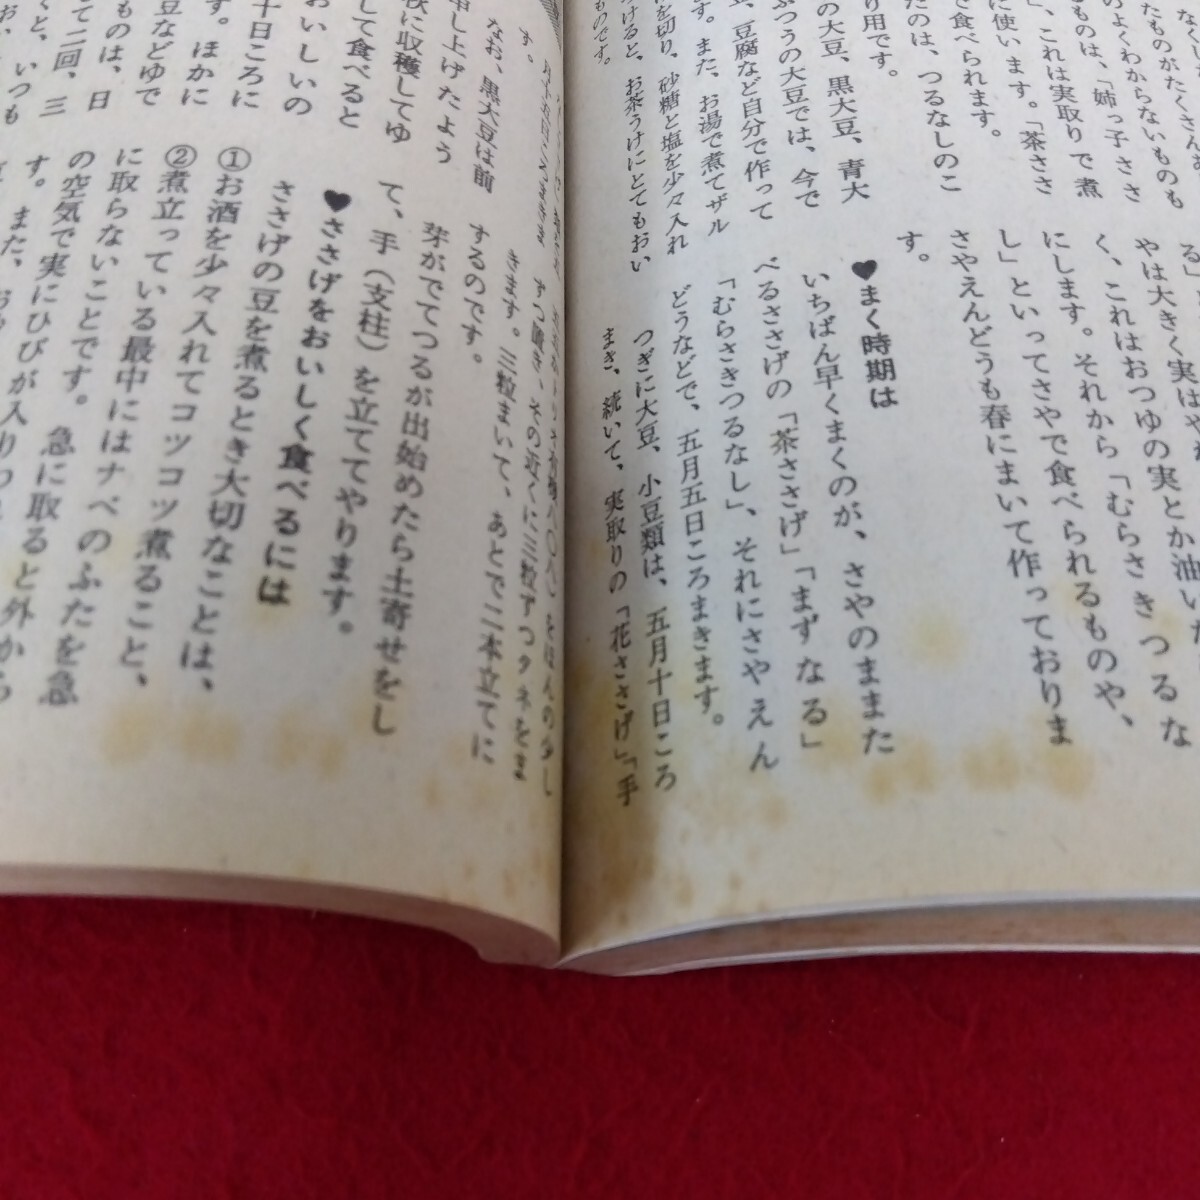 なく、
たものがたくさん
のよくわからないものも
るものは、「姉っ子ささ
」、これは実取りで煮
に使います。「茶ささ
で食べられます。
たのは、つるなしのこ
り用です。
の大豆、黒大豆、青大
ぶつうの大豆では、今で
豆、豆腐など自分で作って
ます。また、お湯で煮てザル
を切り、砂糖と塩を少々入れ
つけると、お茶うけにとてもおい
ものです。
る」
やは大きく実はや
く、これはおつゆの実とか油いた
にします。それから「むらさきつるな
し」といってさやで食べられるものや、
さやえんどうも春にまいて作っておりま
す。
♥まく時期は
いちばん早くまくのが、さやのままた
べるささげの「茶ささげ」「まずなる」
「むらさきつるなし」、それにさやえん
どうなどで、五月五日ころまきます。
つぎに大豆、小豆類は、五月十日ころ
まき、続いて、実取りの「花ささげ」「手
す。
なお、黒大豆は前
申し上げたよう
秋に収穫してゆ
して食べると
おいしいの
十日ころに
す。ほかに
豆などゆで
ものは、日
て二回、三
と、いつも
ずつ置き、その近くに三粒ずつタネをま
きます。三粒まいて、あとで二本立てに
するのです。
芽がでてつるが出始めたら土寄せをし
て、手（支柱）を立ててやります。
♥ささげをおいしく食べるには
ささげの豆を煮るとき大切なことは、
①お酒を少々入れてコツコツ煮ること、
②煮立っている最中にはナベのふたを急
に取らないことです。急に取ると外から
の空気で実にひびが入り
す。また、お